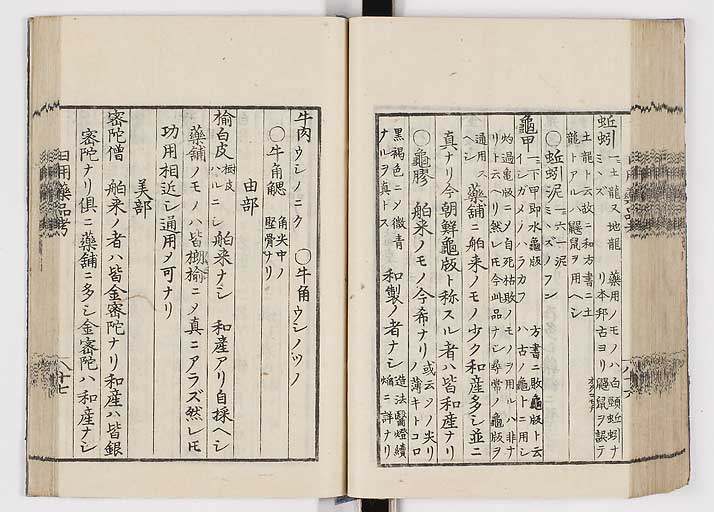 蚯蚓 一ニ土龍又地龍 藥用ノモノハ白頸蚯蚓ナ
ミヽズ リ本邦古ヨリ鼴鼠ヲ誤テ
土龍ト云故ニ和方書ニ土
龍トアルハ鼴鼠ヲ用ヘシ
〇蚯蚓泥 一ニ六一泥
ミヽズノフン
龜甲 一ニ下甲即水龜版 方書ニ敗龜版ト云
イシガメノハラカフ ハ古ノ龜トニ用シ
灼過龜版ニメ自死枯敗ノモノヲ用ルハ非ナ
リト云ヘリ然レ𪜈今此品ナシ尋常ノ龜版ヲ
通用ス 藥舗ニ舶来ノモノ少ク和産多シ並ニ
ヘシ
真ナリ今朝鮮龜版ト称スル者ハ皆和産ナリ
〇龜膠 舶来ノモノ今希ナリ 或云ツノ尖リ
ノ薄キトコロ
黒褐色ニメ微青 和製ノ者ナシ 造法醫燈續
ナルヲ真トス 焔ニ詳ナリ
牛肉 ウシノニク 〇牛角 ウシノツノ
〇牛角䚡 角尖中ノ
堅骨ナリ
由部
榆白皮 樹皮 ハルニレ 舶来ナシ 和産アリ自採ヘシ
藥舗ノモノハ皆榔榆ニメ真ニアラズ然レ𪜈
功用相近シ通用メ可ナリ
美部
密陀僧 舶来ノ者ハ皆金密陀ナリ和産ハ皆銀
密陀ナリ倶ニ藥舗ニ多シ金密陀ハ和産ナシ
日用藥品考
八十七